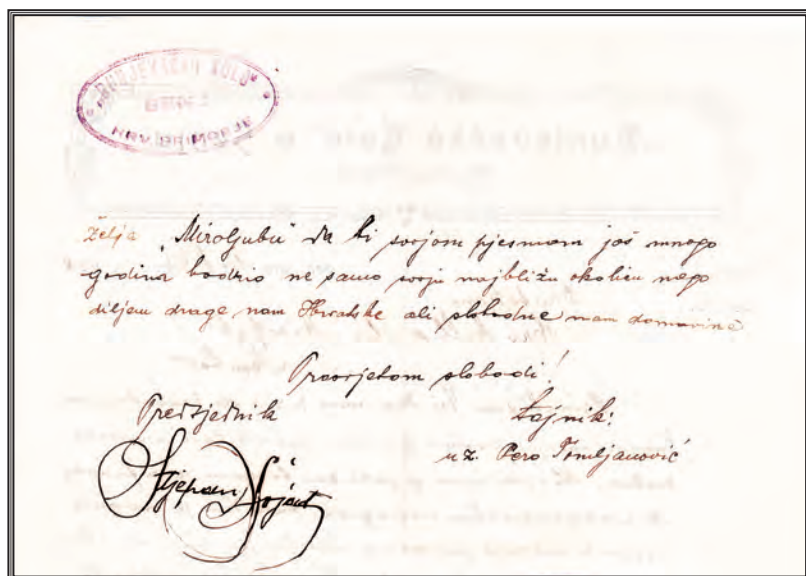 "BUNJEVAČKO KOLO"
SENJ
HRV. PRIMORJE
želja „Miroljubu" da bi svojom pjesmom još mnogo
godina bodrio ne samo svoju najbližu okolicu nego
diljem drage nam Hrvatske ali slobodne nam domovine
Prosvjetom slobodi!
Predsjednik
Tajnik:
uz. Pero Tomljanović
Stjepan Vojčić